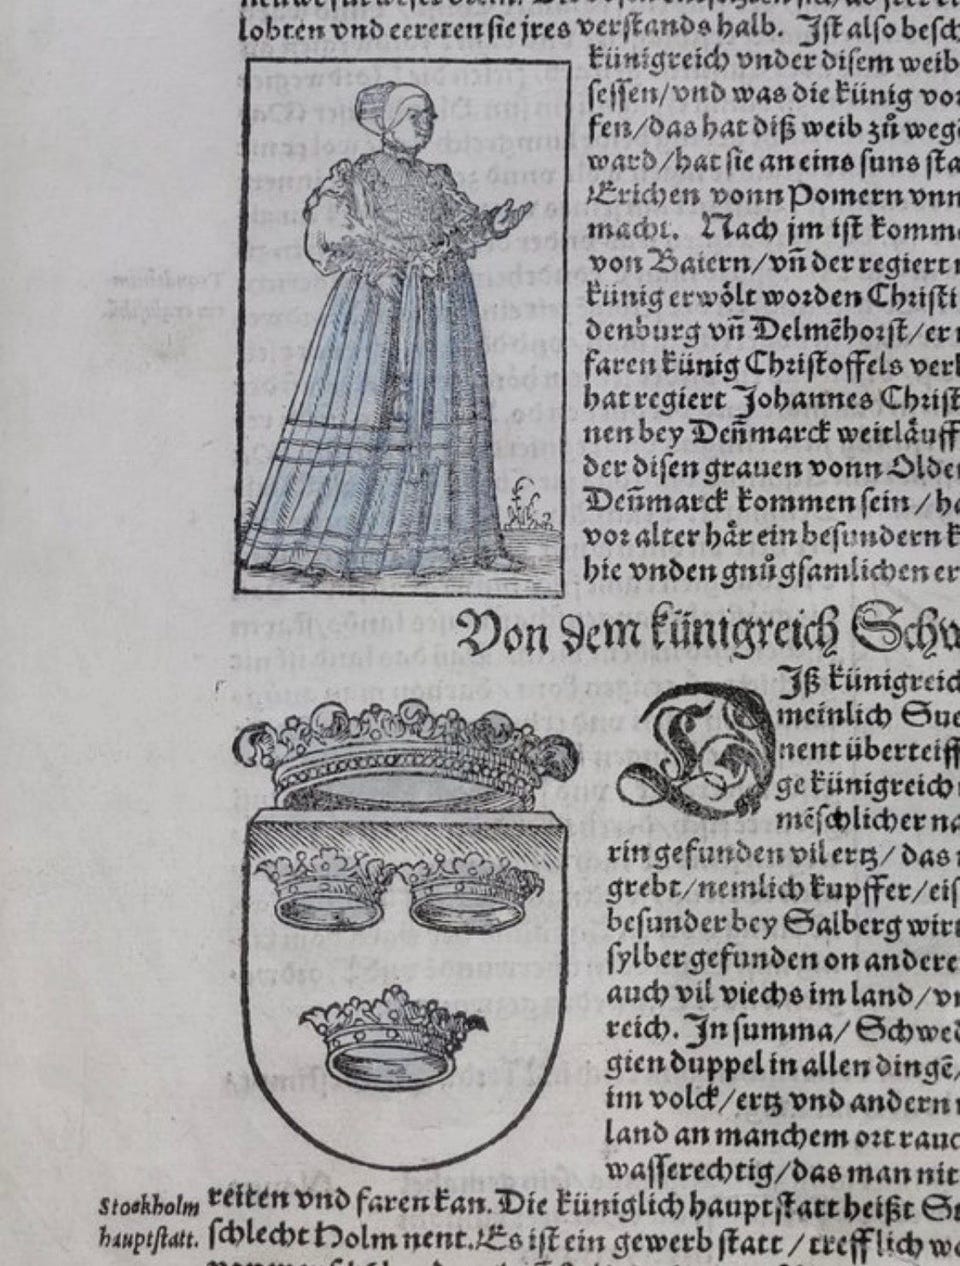 lobten vnd eereten sie jres verstands halb. Jst also besch
künigreich vnder disem weib
sessen/vnd was die künig vor
fen/das hat diß weib zů weg
ward/hat sie an eins suns sta
Erichen vonn Pomern vnn
macht. Nach jm ist komme
von Baiern/vñ der regiert
künig erwölt worden Christi
denburg vñ Delmẽhorst/er
faren künig Christoffels verl
hat regiert Johannes Christ
nen bey Deñmarck weitläuff
der disen grauen vonn Olden
Deñmarck kommen sein/ha
vor alter här ein besundern k
hie vnden gnůgsamlichen er
Von dem künigreich Schw
DJß künigreich
meinlich Sue
nent überteiff
ge künigreich
mẽschlicher na
rin gefunden vil ertz/das
grebt/nemlich kupffer/eis
besunder bey Salberg wirt
sylber gefunden on andere
auch vil viechs im land/vn
reich. Jn summa/Schwed
gien duppel in allen dingẽ/
im volck/ertz vnd andern
land an manchem ort rauc
wasserechtig/das man nit
Stockholm
hauptstatt.
reiten vnd faren kan. Die küniglich hauptstatt heißt St
schlecht Holm nent. Es ist ein gewerb statt/trefflich wo